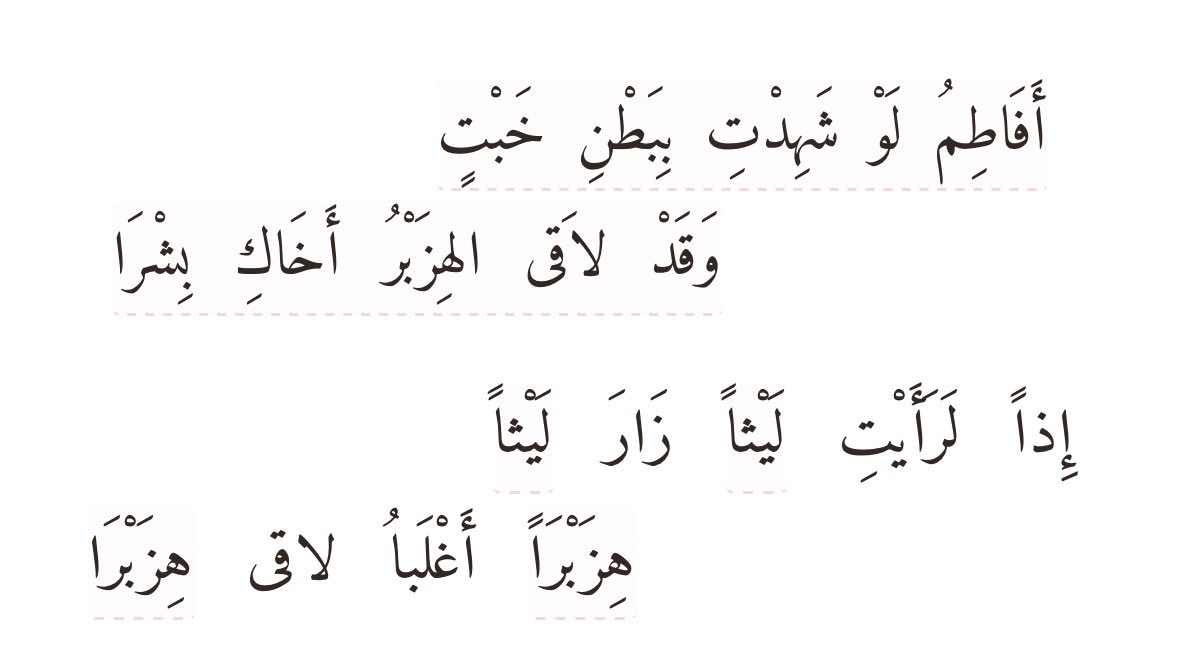 أَفَاطِمُ لَوْ شَهِدْتِ بِبَطْنِ خَبْتٍ
وَقَدْ لاَقى الهِزَبْرُ أَخَاكِ بِشْرَا
إِذاً لَرَأَيْتِ لَيْثاً زَارَ لَيْثاً
هِزَبْرَاً أَغْلَباُ لاقى هِزَبْرَا